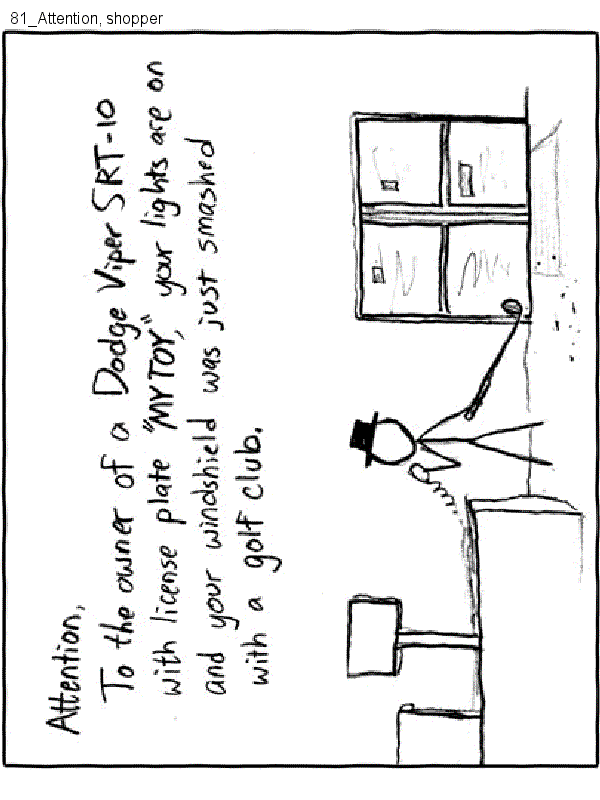 81_Attention, shopper
Attention,
To the owner of a Dodge Viper SRT-10
with license plate "MYTOY," your lights are on
and your windshield was just smashed
with a golf club.